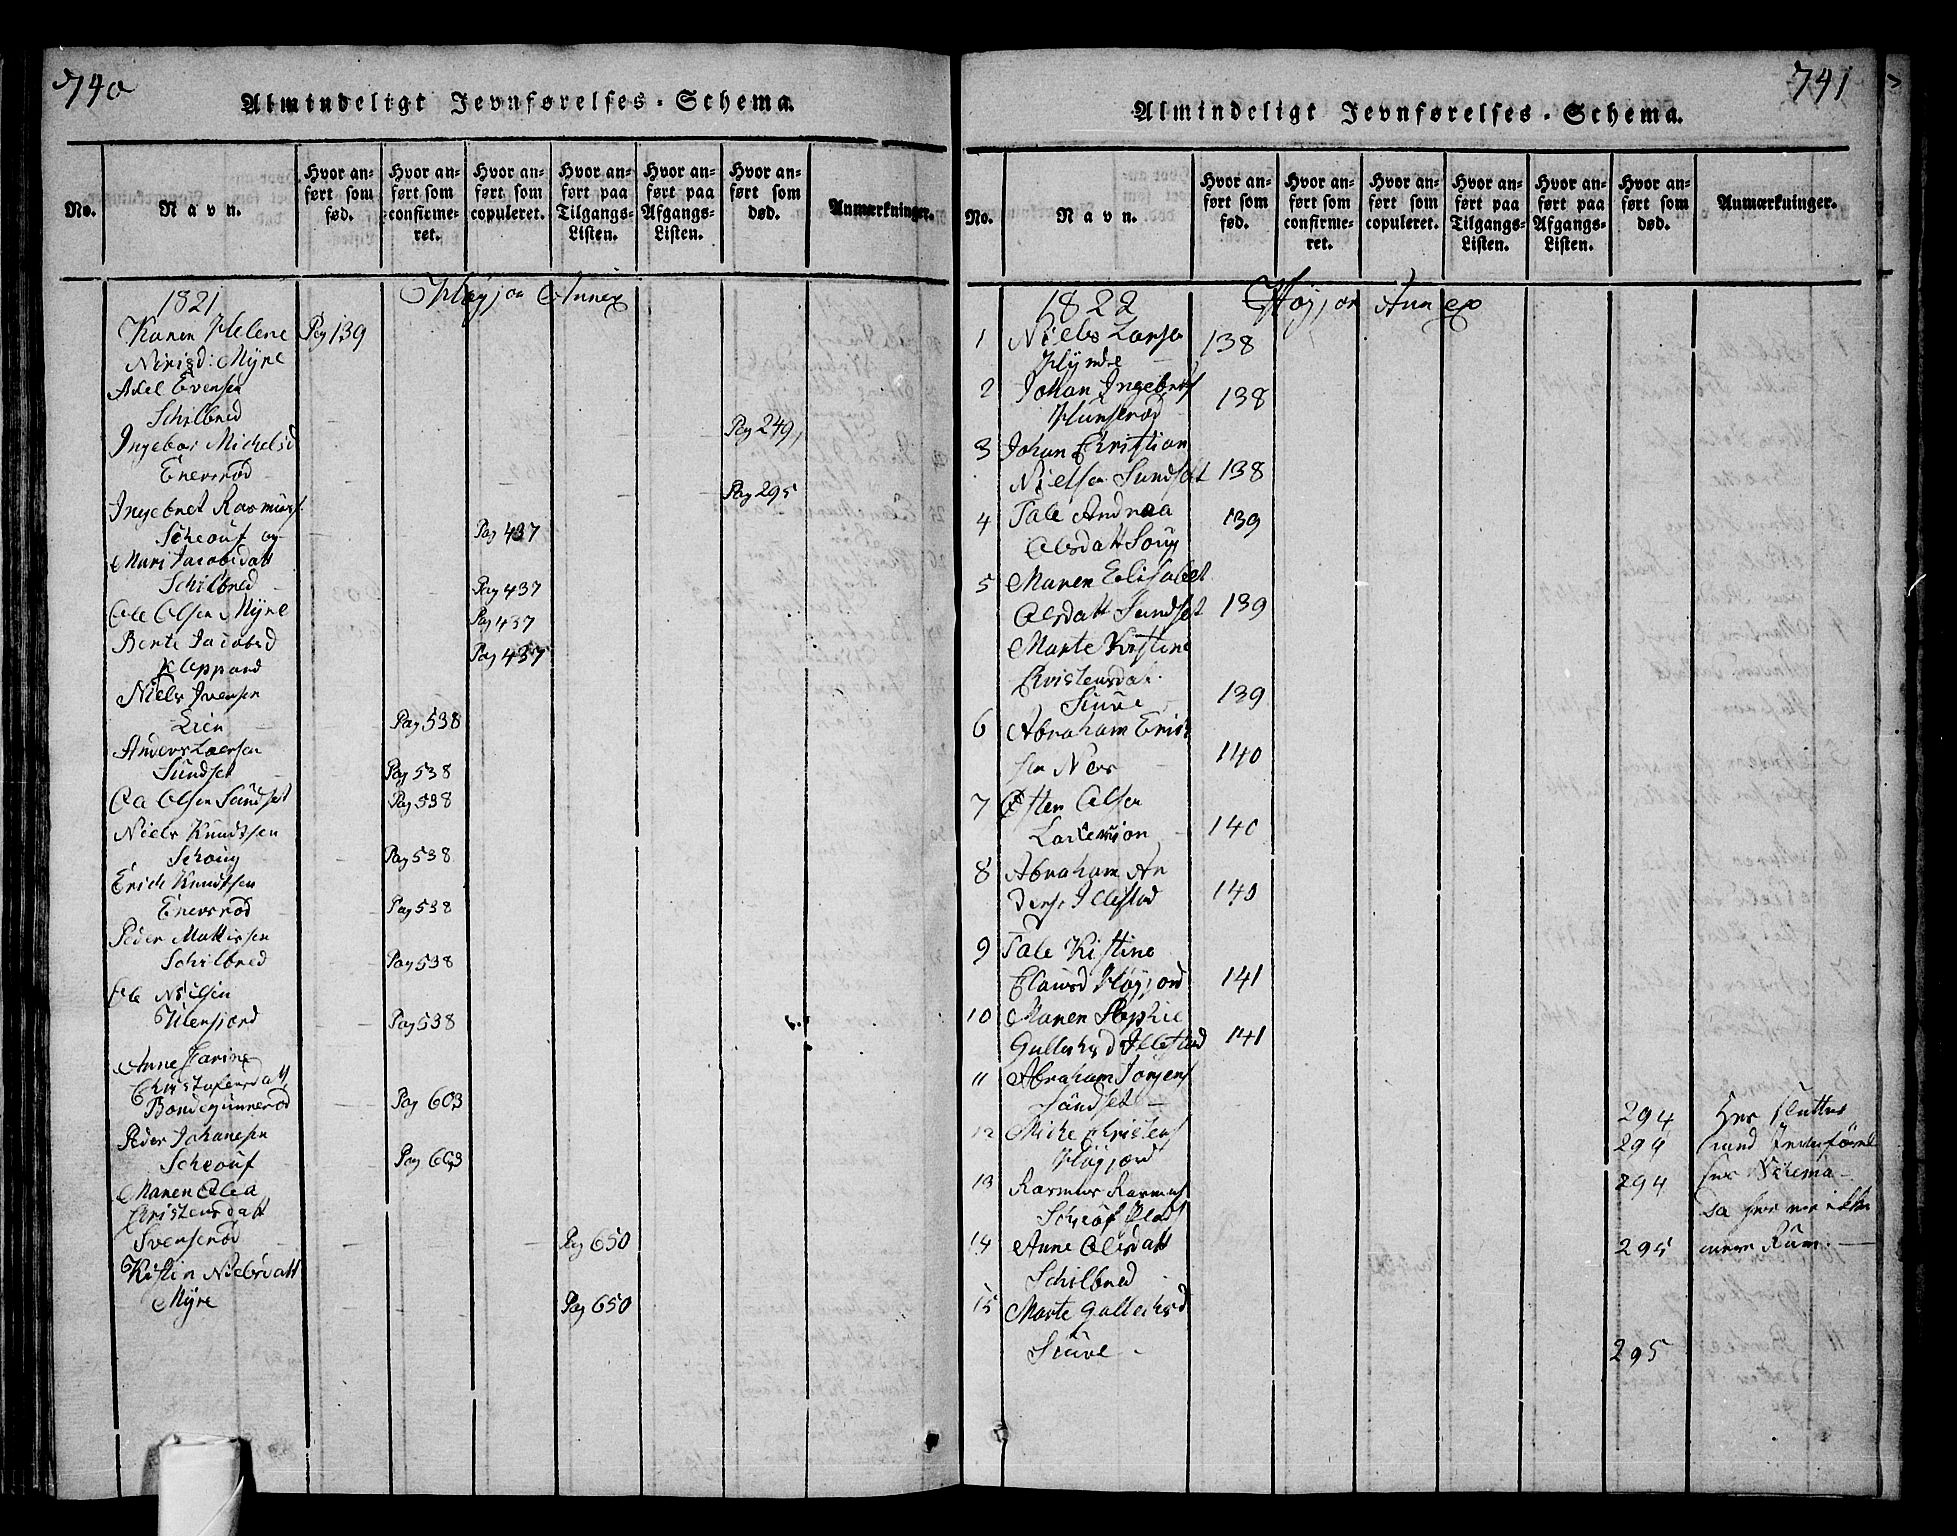 740
Almindeligt Jevnførelses-Schema.
No.
Navn.
Hvor anført som fød.
Hvor anført som confirmeret.
Hvor anført som copuleret.
Hvor anført paa Tilgangs-Listen.
Hvor anført paa Afgangs-Listen.
Hvor anført som død.
Anmærkninger.
1821 Høyjor Annex
Karen Helene Pag 139
Myre
Axel Evensen
Schilbred Pag 249
Ingebor Michelsd
Enersrød Pag 295
Ingebret Rasmuss
Scheouf og Pag 437
Mari Jacobsdatt
Schilbred Pag 437
Ole Olsen Myre Pag 437
Bente Jacobsd Pag 437
Kleppand
Niels Ivensen
Lien Pag 538
Anders Laersen
Sundset Pag 538
Olsen Sundset Pag 538
Niels Knudtsen
Schoug Pag 538
Erich Knudtsen
Enersrød Pag 538
Peder Mattissen
Schilbred Pag 538
Ole Nilsen
Pag 538
Anne Karine
Christofersdatt
Bondegunnerød Pag 603
Peder Johanesen
Scheouf Pag 603
Maren Olea
Christensdatt
Svenserød Pag 650
Kistin Nielsdatt
Myre Pag 650
741
Almindeligt Jevnførelses-Schema.
No.
Navn.
Hvor anført som fød.
Hvor anført som confirmeret.
Hvor anført som copuleret.
Hvor anført paa Tilgangs-Listen.
Hvor anført paa Afgangs-Listen.
Hvor anført som død.
Anmærkninger.
1822 Høyjor Annex
1 Niels Larse 138
Hynde
2 Johan Ingebrets 138
Hunserød
3 Johan Christian
Nielsen Sundset 138
4 Tale Andrea 139
Olsdatt Soug
5 Maren Elisabet
Olsdatt Sundset 139
Marte Kistine
Christensdat
Stuve 139
6 Abraham Erich
sen Nes 140
7 Otten Olsen
140
8 Abraham An
derse Illestad 140
9 Tale Kistine
Clausd Høyjord 141
10 Maren Sophie
Gulleksd Illestad 141
11 Abraham Jørgens
Sundset 294 Her sluttes
12 Miche Christens 294
Høyjord
13 Rasmus Rasmus 294 Schema
da her er ikke
14 Anne Olsdatt 295 mere Rum.
Schilbred
15 Marte Gulleksd
Stuve 295